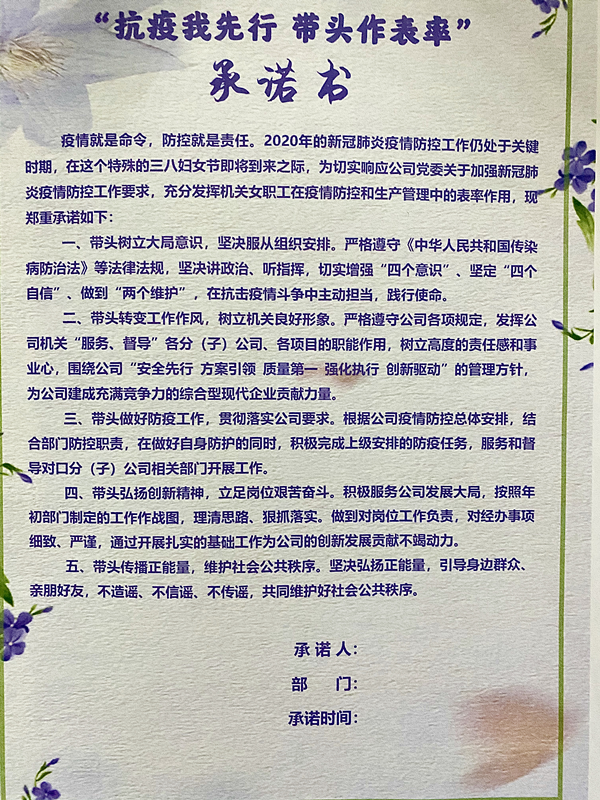 “抗疫我先行 带头作表率”
承诺书
疫情就是命令，防控就是责任。2020年的新冠肺炎疫情防控工作仍处于关键
时期，在这个特殊的三八妇女节即将到来之际，为切实响应公司党委关于加强新冠肺
炎疫情防控工作要求，充分发挥机关女职工在疫情防控和生产管理中的表率作用，现
郑重承诺如下：
一、带头树立大局意识，坚决服从组织安排。严格遵守《中华人民共和国传染
病防治法》等法律法规，坚决讲政治、听指挥，切实增强“四个意识”、坚定“四个
自信”、做到“两个维护”，在抗击疫情斗争中主动担当，践行使命。
二、带头转变工作作风，树立机关良好形象。严格遵守公司各项规定，发挥公
司机关“服务、督导”各分（子）公司、各项目的职能作用，树立高度的责任感和事
业心，围绕公司“安全先行 方案引领 质量第一 强化执行 创新驱动”的管理方针，
为公司建成充满竞争力的综合型现代企业贡献力量。
三、带头做好防疫工作，贯彻落实公司要求。根据公司疫情防控总体安排，结
合部门防控职责，在做好自身防护的同时，积极完成上级安排的防疫任务，服务和督
导对口分（子）公司相关部门开展工作。
四、带头弘扬创新精神，立足岗位艰苦奋斗。积极服务公司发展大局，按照年
初部门制定的工作作战图，理清思路、狠抓落实。做到对岗位工作负责，对经办事项
细致、严谨，通过开展扎实的基础工作为公司的创新发展贡献不竭动力。
五、带头传播正能量，维护社会公共秩序。坚决弘扬正能量，引导身边群众、
亲朋好友，不造谣、不信谣、不传谣，共同维护好社会公共秩序。
承 诺 人：
部 门：
承诺时间：